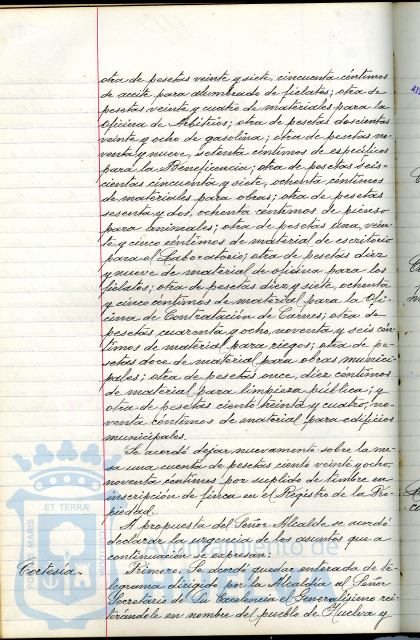 otra de pesetas veinte y siete, cincuenta céntimos
de aceite para alumbrado de fielatos; otra de
pesetas veinte y cuatro de materiales para la
oficina de Arbitrios; otra de pesetas doscientas
veinte y ocho de gasolina; otra de pesetas no-
venta y nueve, setenta céntimos de específicos
para la Beneficencia; otra de pesetas seis-
cientas cincuenta y siete, ochenta céntimos
de materiales para obras; otra de pesetas
sesenta y dos, ochenta céntimos de pienso
para animales; otra de pesetas una, vein-
te y cinco céntimos de material de escritorio
para el Laboratorio; otra de pesetas diez
y nueve de material de oficina para los
fielatos; otra de pesetas diez y siete, ochenta
y cinco céntimos de material para la Ofi-
cina de Contratación de Carnes; otra de
pesetas cuarenta y ocho, noventa y seis cén-
timos de material para riegos; otra de pe-
setas doce de material para obras munici-
pales; otra de pesetas once, diez céntimos
de material para limpieza pública; y
otra de pesetas ciento treinta y cuatro, no-
venta céntimos de material para edificios
municipales.
Se acordó dejar nuevamente sobre la me-
sa una cuenta de pesetas ciento veinte y ocho,
noventa céntimos por suplido de timbre en
inscripción de finca en el Registro de la Pro-
piedad.
A propuesta del Señor Alcalde se acordó
declarar la urgencia de los asuntos que a
continuación se expresan:
Cortesía. Primero. Se acordó quedar enterada de te-
legrama dirigido por la Alcaldía al Señor
Secretario de Su Excelencia el Generalísimo rei-
terándole en nombre del pueblo de Huelva y
PORTUS MARIS
ET TERRÆ